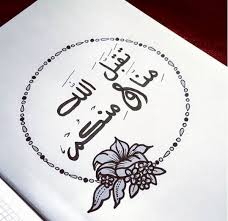 تقبل الله
منا و منكم